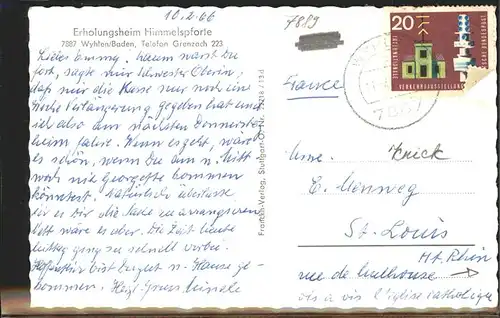 10.2.66
Erholungsheim Himmelspforte
7887 Wyhlen/Baden, Telefon Grenzach 223
7889
20
DEUTSCHE BUNDESPOST
VERKEHRSAUSSTELLUNG
7887
Liebes Emmy! Kaum warst Du
fort, sagte mir Schwester Oberin,
daß mir die Kasse nur noch eine
Woche Verlängerung gegeben hat und
ich also am nächsten Donnerstag
heim fahre. Wenn es geht, wäre
es schön, wenn Du am n. Mitt-
woch mit Georgette kommen
könntest. Natürlich überlasse
ich es Dir die Sache zu arrangieren
nett wäre es aber. Die Zeit heute
mittag ging zu schnell vorbei.
Hoffentlich bist Du gut n. Hause ge-
kommen. Herzl. Gruss
Franken-Verlag, Stuttgart-O, Nr. 15218/134
France
Mme. Krick
E. Menweg
St. Louis
Ht Rhin
rue de Mulhouse
vis a vis l'Eglise catholique